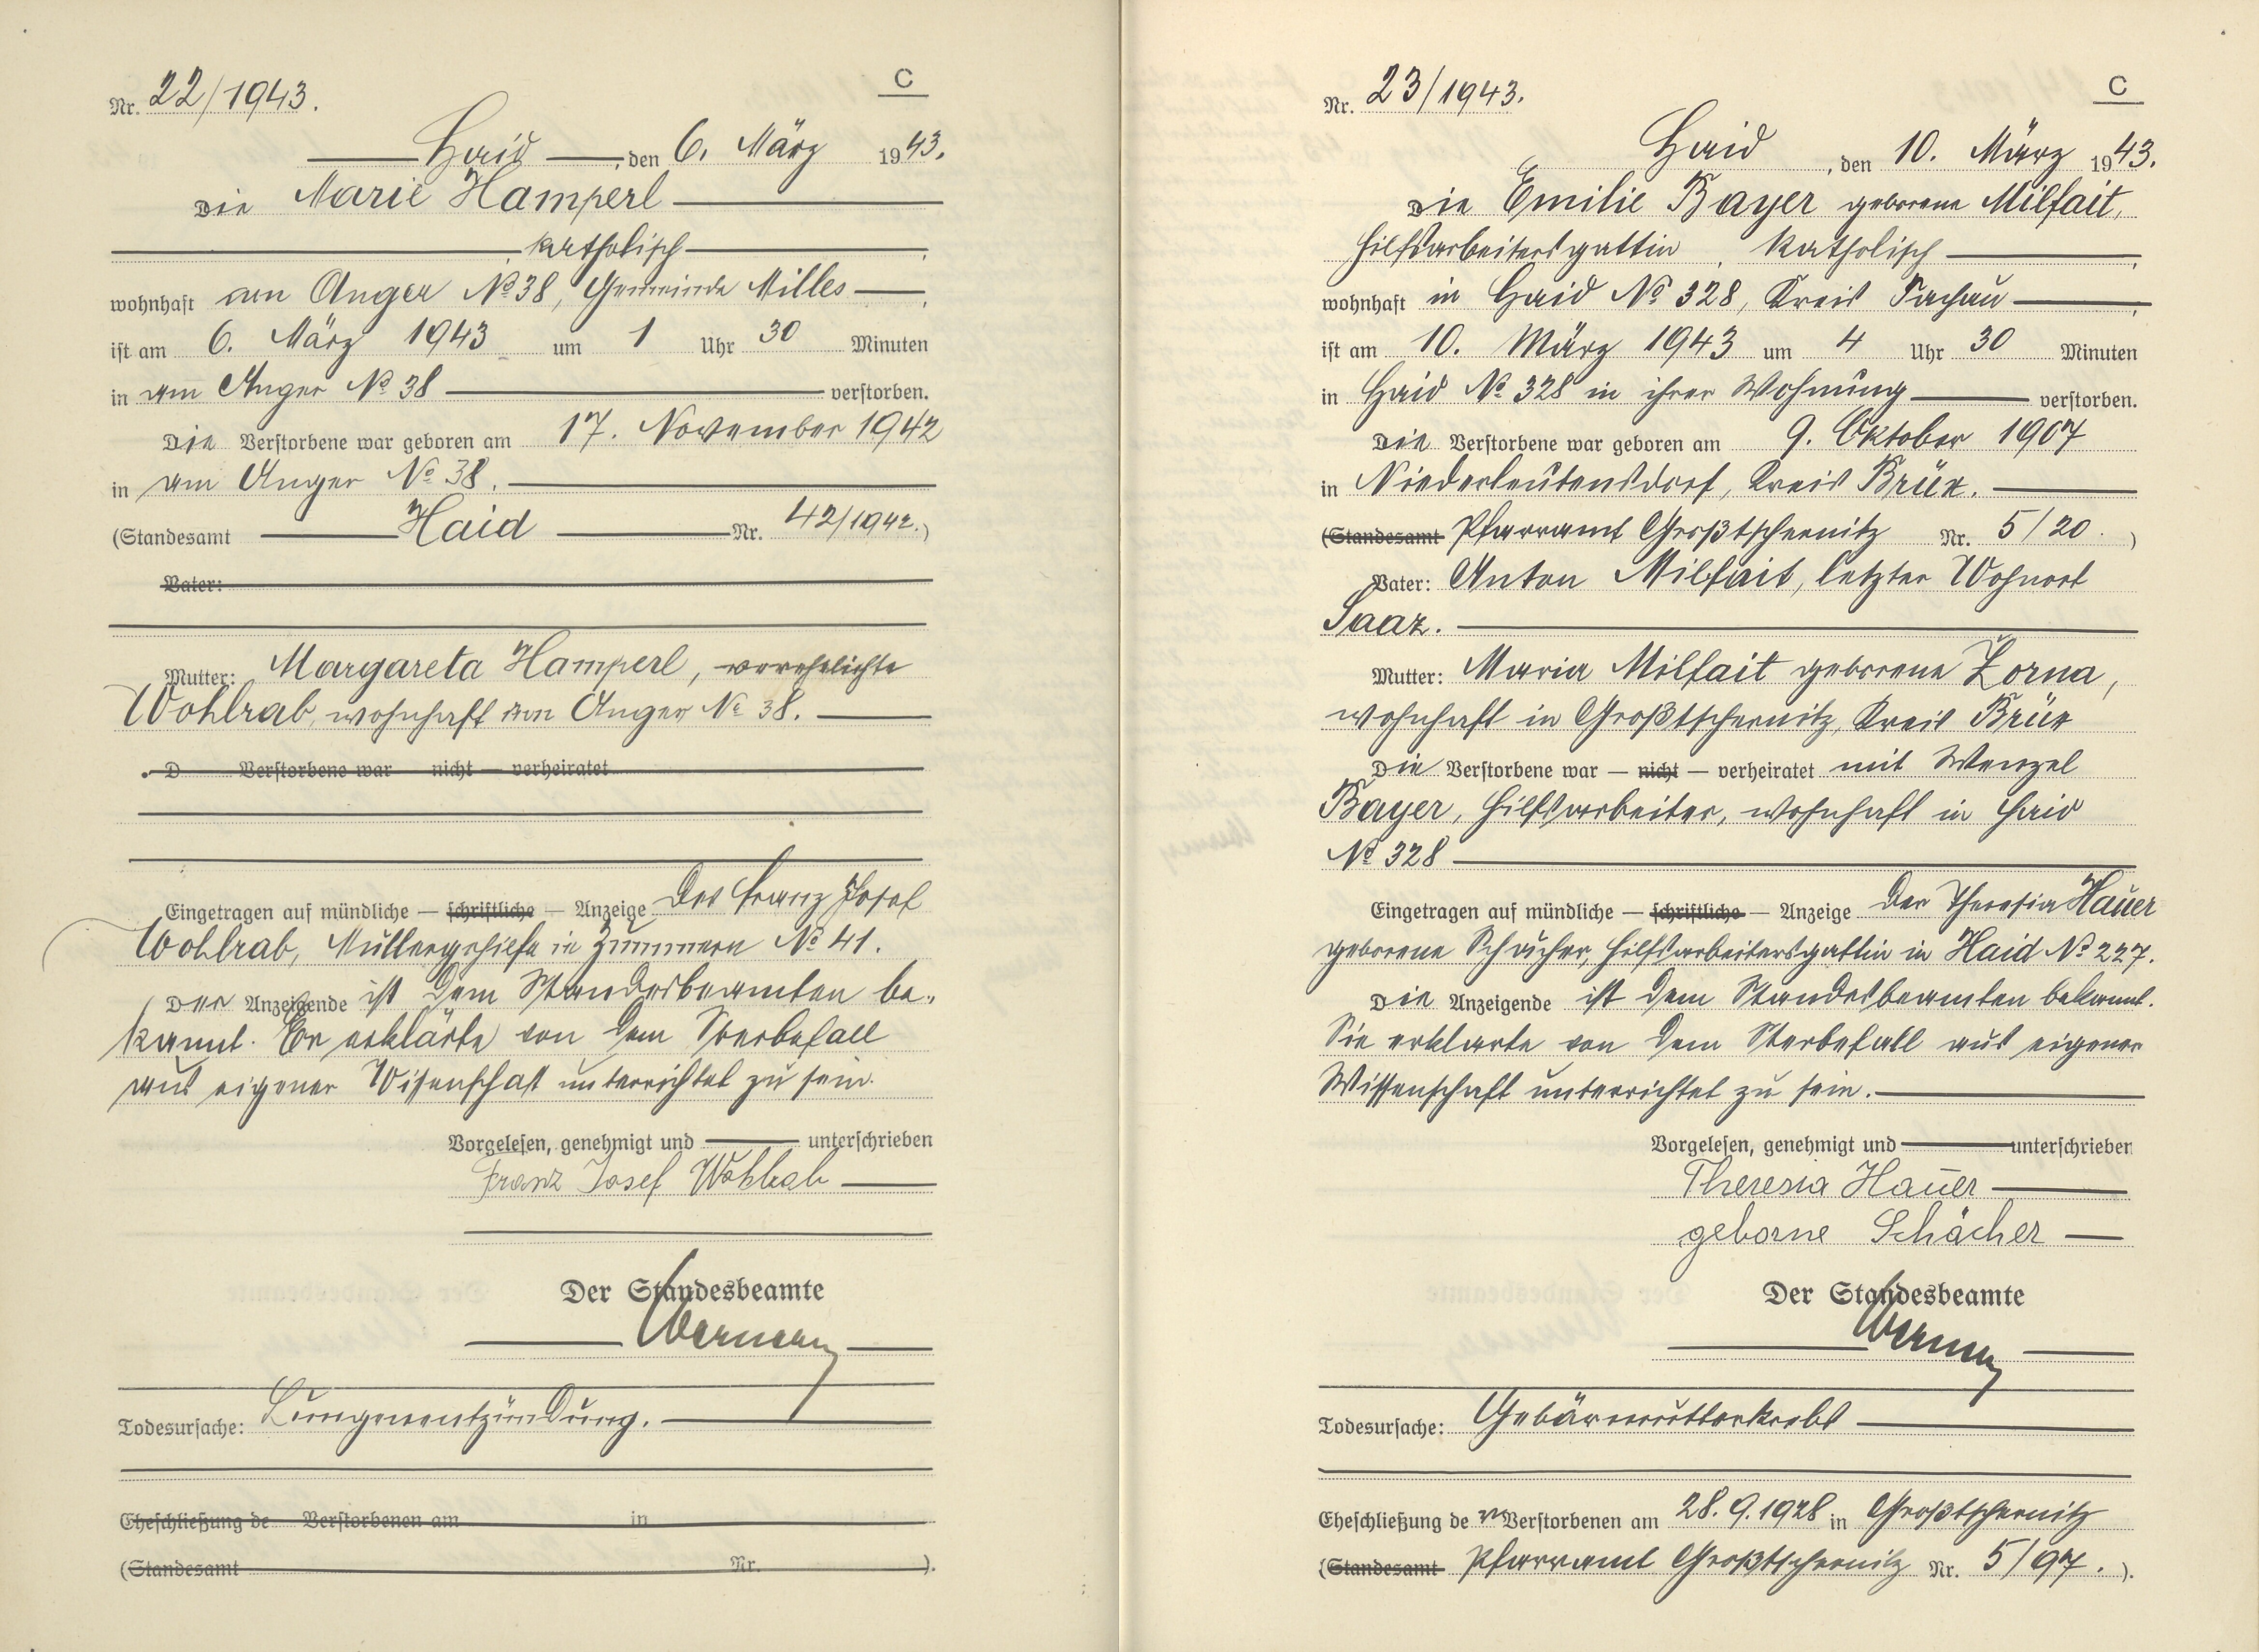 C
Nr. 22/1943.
Haid, den 6. März 1943.
Die Marie Hamperl
katholisch
wohnhaft am Anger № 38, Gemeinde Milles
ist am 6. März 1943 um 1 Uhr 30 Minuten
in am Anger № 38 verstorben.
Die Verstorbene war geboren am 17. November 1942
in am Anger № 38.
(Standesamt Haid Nr. 42/1942.)
Vater:
Mutter: Margareta Hamperl, verehelichte
Wohlrab, wohnhaft am Anger № 38.
D Verstorbene war — nicht — verheiratet
Eingetragen auf mündliche — schriftliche — Anzeige des Franz Josef
Wohlrab, Müllergehilfe in Zummern № 41.
Der Anzeigende ist dem Standesbeamten be-
kannt. Er erklärte von dem Sterbefall
aus eigener Wisenschaft unterrichtet zu sein.
Vorgelesen, genehmigt und unterschrieben
Franz Josef Wohlrab
Der Standesbeamte
Todesursache: Lungenentzündung.
Eheschließung de Verstorbenen am in
(Standesamt Nr. ).
C
Nr. 23/1943.
Haid, den 10. März 1943.
Die Emilie Bayer geborene Milfait,
Hilfsarbeitersgattin, katholisch
wohnhaft in Haid № 328, Kreis Tachau
ist am 10. März 1943 um 4 Uhr 30 Minuten
in Haid № 328 in ihrer Wohnung verstorben.
Die Verstorbene war geboren am 9. Oktober 1907
in Niederleutensdorf, Kreis Brüx.
(Standesamt Pfarramt Großtschernitz Nr. 5/20.)
Vater: Anton Milfait, letzter Wohnort
Saaz.
Mutter: Maria Milfait geborene Zorna,
wohnhaft in Großtschernitz, Kreis Brüx
Die Verstorbene war — nicht — verheiratet mit Wenzel
Bayer, Hilfsarbeiter, wohnhaft in Haid
№ 328
Eingetragen auf mündliche — schriftliche — Anzeige der Theresia Hauer
geborene Schächer, Hilfsarbeitersgattin in Haid № 227.
Die Anzeigende ist dem Standesbeamten bekannt.
Sie erklarte von dem Sterbefall aus eigener
Wissenschaft unterrichtet zu sein.
Vorgelesen, genehmigt und unterschrieben
Theresia Hauer
geborne Schächer
Der Standesbeamte
Todesursache: Gebärmutterkrebs
Eheschließung der Verstorbenen am 28.9.1928 in Großtschernitz
(Standesamt Pfarramt Großtschernitz Nr. 5/97.).